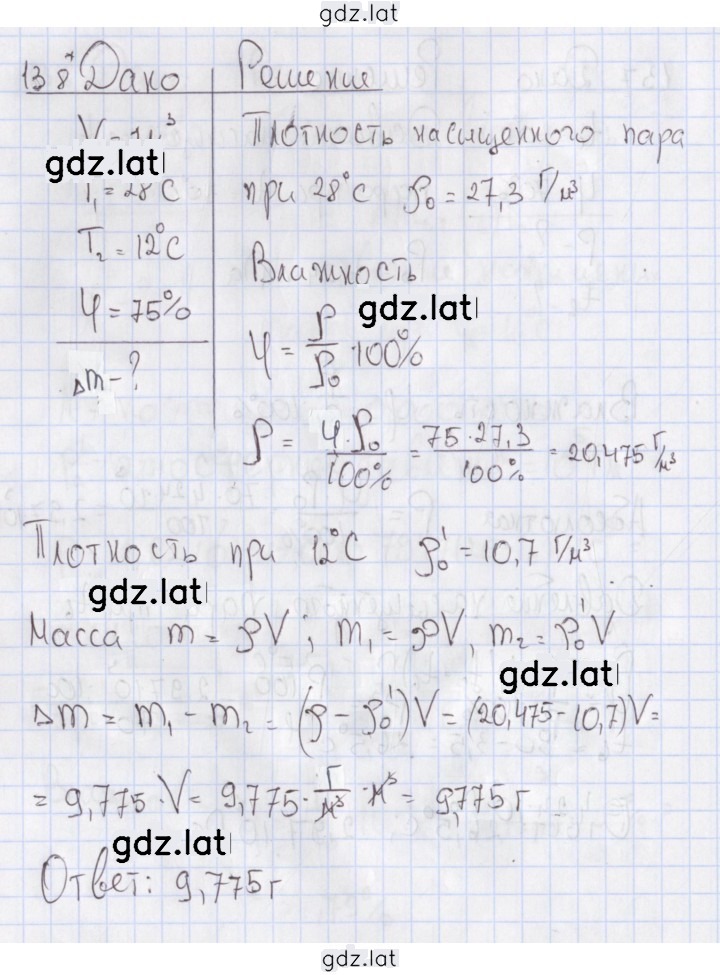 gdz.lat
138* Дано Решение
gdz.lat
T₁ = 28°C
T₂ = 12°C
φ = 75%
Δm - ?
Плотность насыщенного пара
при 28°C ρ₀ = 27,3 г/м³
Влажность
gdz.lat
φ = ρ/ρ₀ · 100%
ρ = φ·ρ₀/100% = 75·27,3/100% = 20,475 г/м³
Плотность при 12°C ρ₀' = 10,7 г/м³
gdz.lat
Масса m = ρV; m₁ = ρV, m₂ = ρ₀'V
gdz.lat
Δm = m₁ - m₂ = (ρ - ρ₀')V = (20,475 - 10,7)V =
= 9,775 · V = 9,775 · г/м³ · м³ = 9,775 г
gdz.lat
Ответ: 9,775 г
gdz.lat